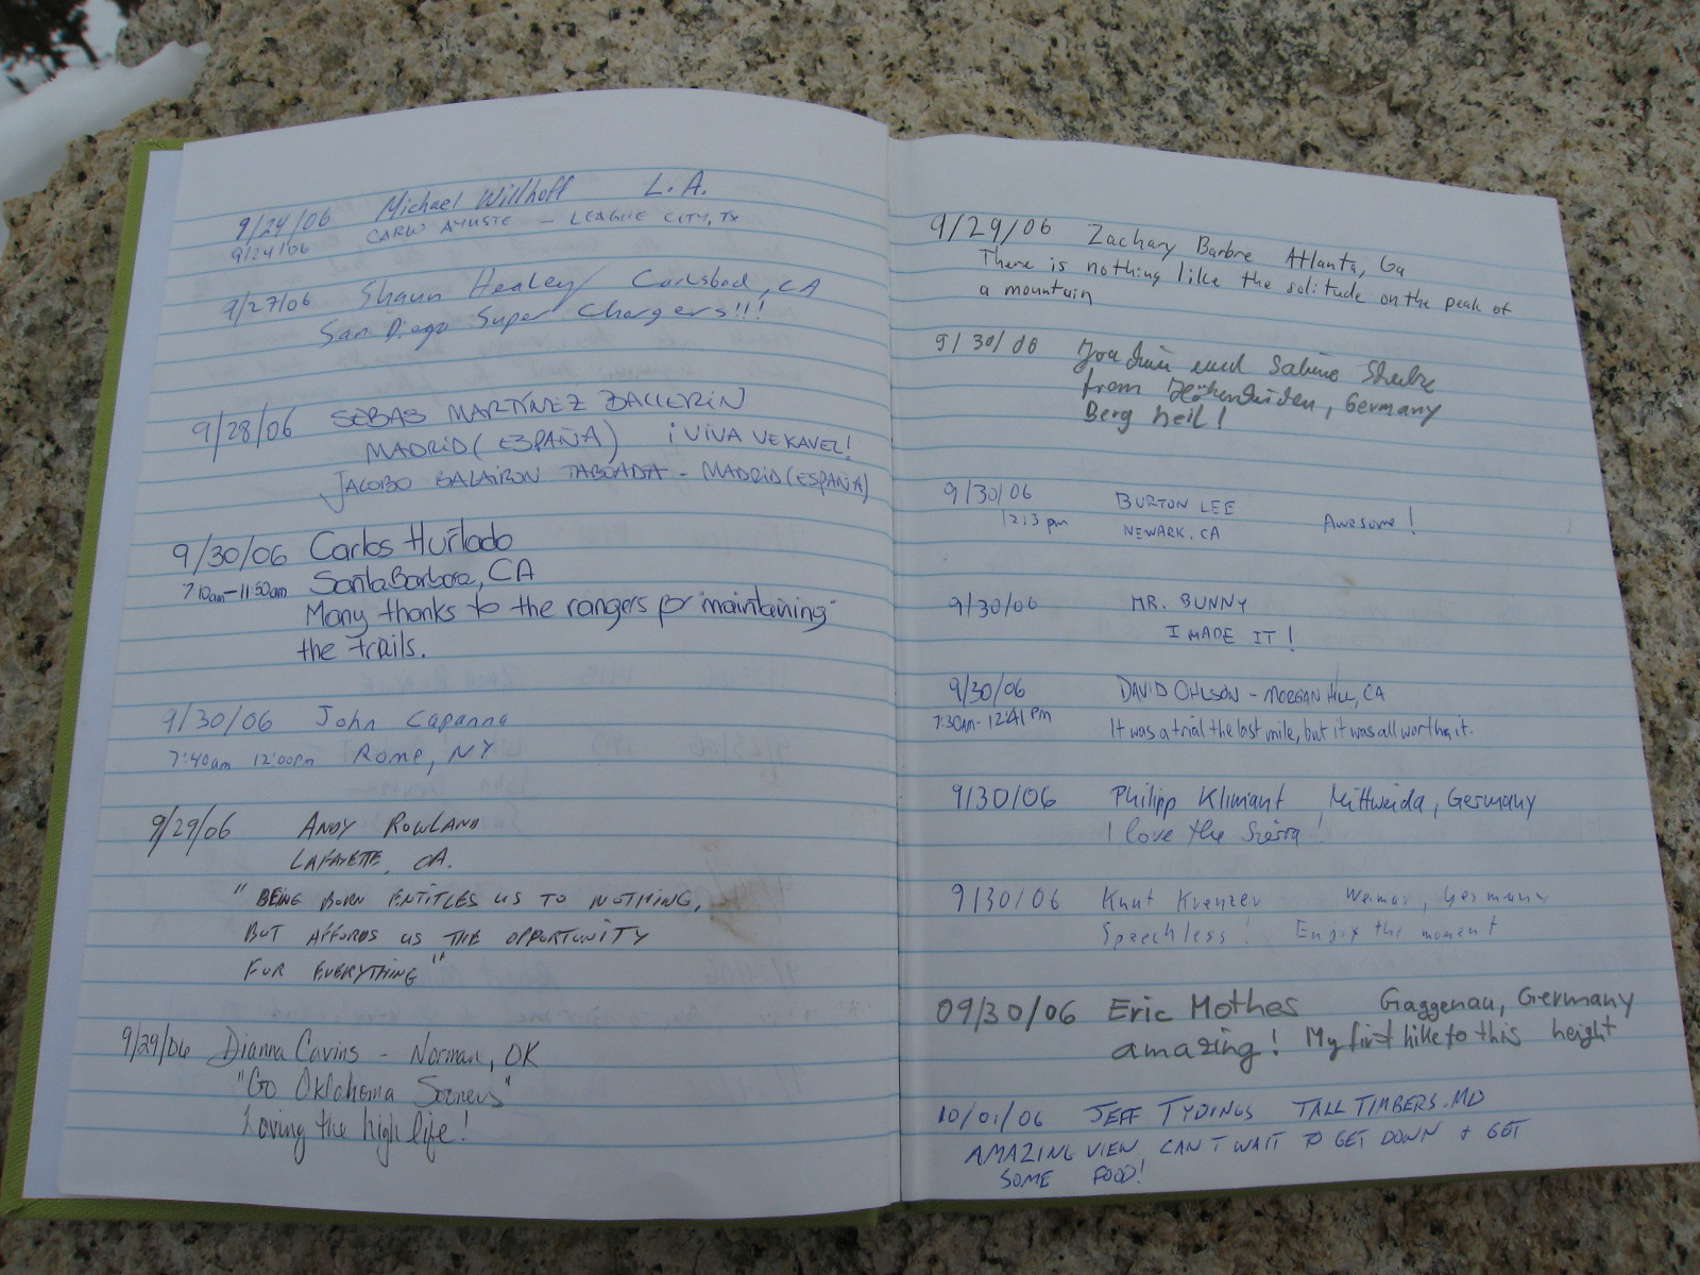 9/24/06 Michael Willhoff L.A.
9/24/06 - LEAGUE CITY, TX
9/27/06 Shaun Healey Carlsbad, CA
San Diego Super Chargers!!!
9/28/06 SEBAS MARTÍNEZ BALLERIN
MADRID (ESPAÑA) ¡VIVA VEKAVEZ!
JACOBO BALAIRON TABOADA - MADRID (ESPAÑA)
9/30/06 Carlos Hurtado
7:10am-11:50am Santa Barbara, CA
Many thanks to the rangers for "maintaining"
the trails.
9/30/06 John Capanna
7:40am 12:00pm Rome, NY
9/29/06 ANDY ROWLAND
LAFAYETTE, CA.
"BEING BORN ENTITLES US TO NOTHING,
BUT AFFORDS US THE OPPORTUNITY
FOR EVERYTHING"
9/29/06 Dianna Cavins - Norman, OK
"Go Oklahoma Sooners"
Loving the high life!
9/29/06 Zachary Barbre Atlanta, Ga
There is nothing like the solitude on the peak of
a mountain
9/30/06 und Sabine
from Germany
Berg heil!
9/30/06 BURTON LEE
12:13 pm NEWARK, CA Awesome!
9/30/06 MR. BUNNY
I MADE IT!
9/30/06 DAVID OHLSON - MORGAN HILL, CA
7:30AM-12:41PM It was a trial the last mile, but it was all worth it.
9/30/06 Philipp Klimant Mittweida, Germany
I love the Sierra!
9/30/06 Knut Krenzer Weimar, Germany
Speechless! Enjoy the moment
09/30/06 Eric Mothes Gaggenau, Germany
amazing! My first hike to this height
10/01/06 JEFF TYDINGS TALL TIMBERS. MD
AMAZING VIEW CAN'T WAIT TO GET DOWN + GET
SOME FOOD!